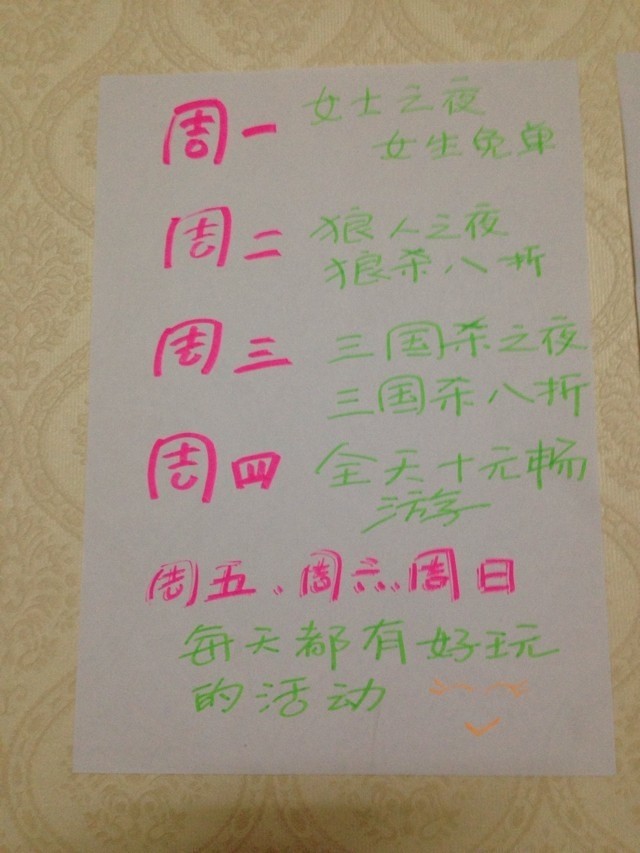 周一 女士之夜
女生免单
周二 狼人之夜
狼杀八折
周三 三国杀之夜
三国杀八折
周四 全天十元畅
游
周五、周六、周日
每天都有好玩
的活动